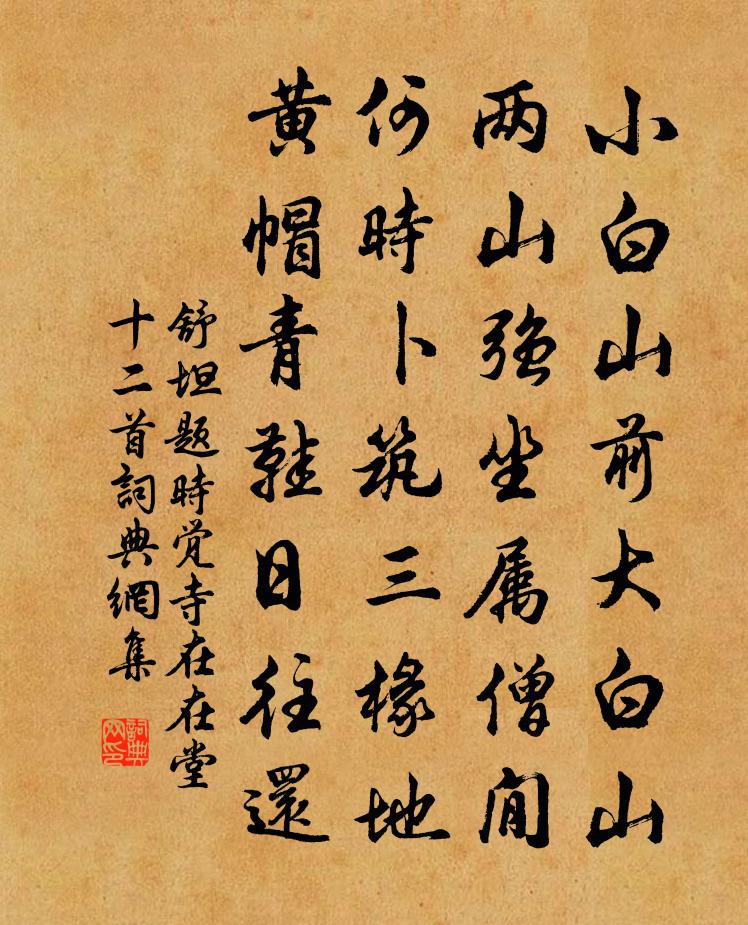 小白山前大白山
两山强坐属僧閒
何時卜筑三椽地
黄帽青鞋日往還
舒坦题時觉寺在在堂
十二首詞典網集
詞典网印